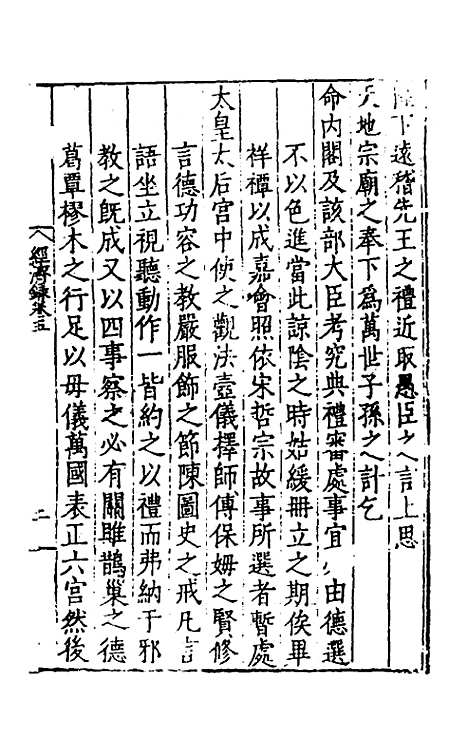 陛下遠稽先王之禮近取愚臣之言上思
天地宗廟之奉下爲萬世子孫之計乞
命内閣及該部大臣考究典禮審處事宜 由德選
不以色進當此諒陰之時姑緩冊立之期俟畢
祥禫以成嘉會照依宋哲宗故事所選者暫處
太皇太后宫中使之觀法壼儀擇師傅保姆之賢修
言德功容之教嚴服飾之節陳圖史之戒凡言
語坐立視聽動作一皆約之以禮而弗納于邪
教之既成又以四事察之必有關雎鵲巢之德
葛覃樛木之行足以母儀萬國表正六宫然後
經濟錄卷五
二